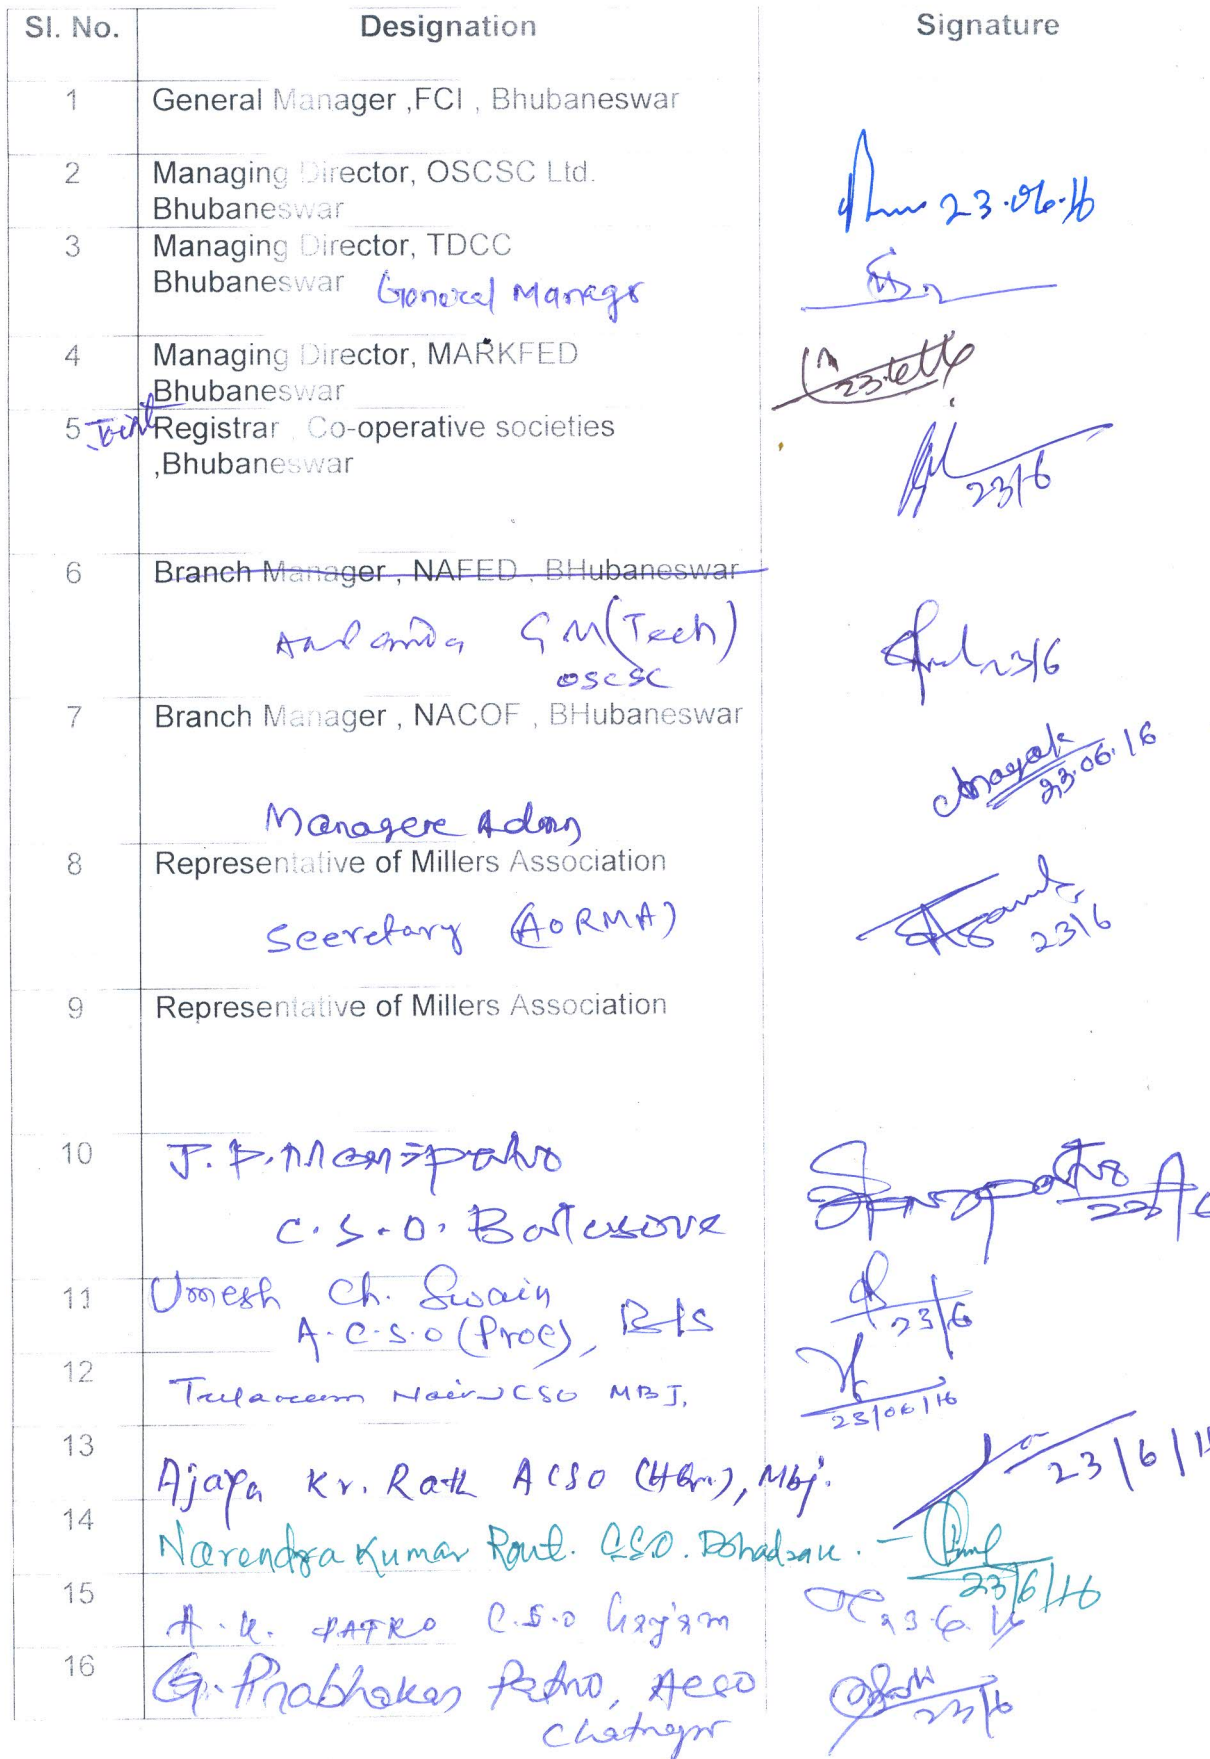 Sl. No. Designation Signature
1 General Manager ,FCI , Bhubaneswar
2 Managing Director, OSCSC Ltd.
Bhubaneswar
23.06.16
3 Managing Director, TDCC
Bhubaneswar General Manager
4 Managing Director, MARKFED
Bhubaneswar
23.6.16
5 Joint Registrar , Co-operative societies
,Bhubaneswar
23/6
6 Branch Manager , NAFED , BHubaneswar
GM (Tech)
OSCSC
23/6
7 Branch Manager , NACOF , BHubaneswar
23.06.16
Manager Admn
8 Representative of Millers Association
Secretary (AORMA)
23/6
9 Representative of Millers Association
10 J.P.
C.S.O. Balasore
23/6
11 Umesh Ch. Swain
A.C.S.O (Proc), Bls
23/6
12 CSO MBJ.
23/06/16
13
Ajaya Kr. Rath ACSO (HQr.), Mbj.
23/6/16
14
Narendra Kumar Rout. CSO. Bhadrak. -
23/6/16
15
A.K. PATRO C.S.O Ganjam
23.6.16
16 G. Prabhakar Patro, ACSO
Chatrapur
23/6